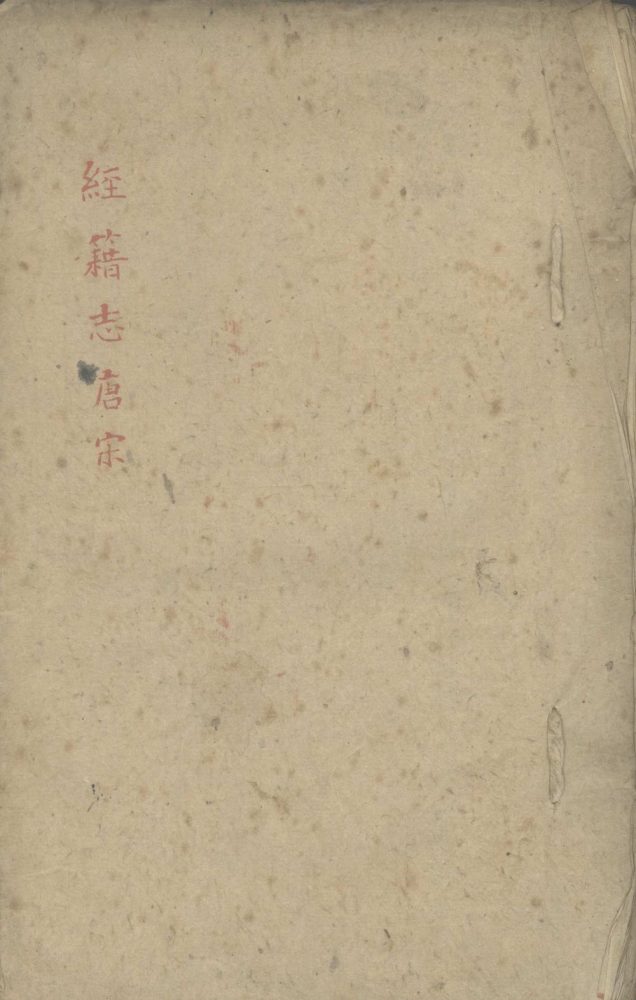 經籍志唐宋